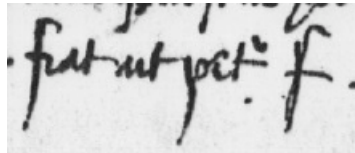 fiat ut petr f